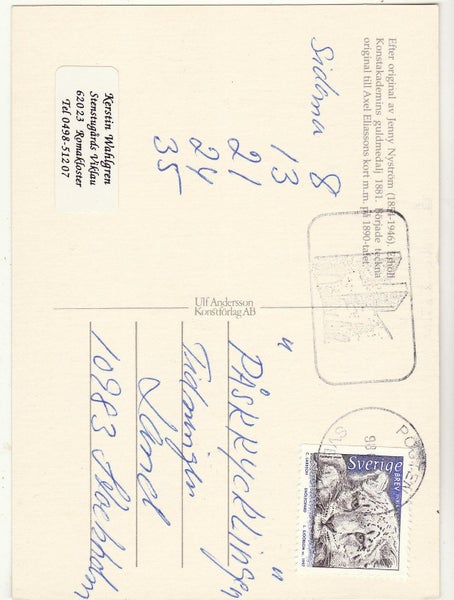 Efter original av Jenny Nyström (1854-1946). Erhöll
Konstakademins guldmedalj 1881. Började teckna
original till Axel Eliassons kort m.m. på 1890-talet.
Sidorna 8
13
21
24
35
Kerstin Wahlgren
Stenstugårds Viklau
62023 Romakloster
Tel 0498-512 07
Ulf Andersson
Konstförlag AB
"PÅSKKYCKLINGEN"
Tidningen
Land
10983 Stockholm
POSTEN
98
Sverige
BREV
SNÖLEOPARD